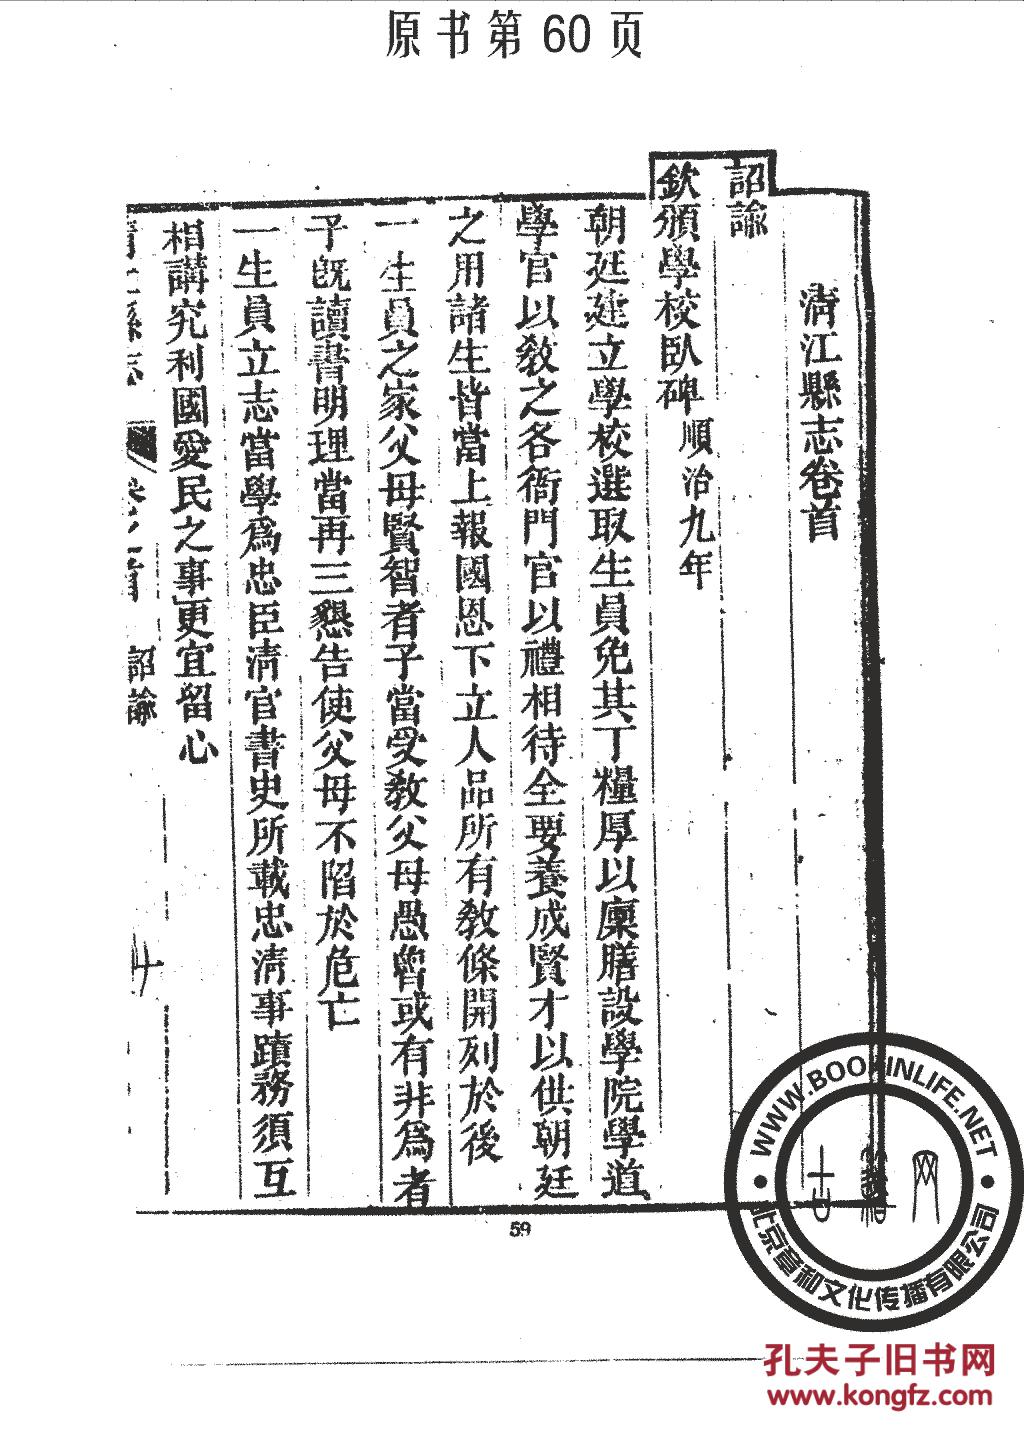 原书第60页
清江縣志卷首
詔諭
欽頒學校臥碑順治九年
朝廷建立學校選取生員免其丁糧厚以廩膳設學院學道
學官以敎之各衙門官以禮相待全要養成賢才以供朝廷
之用諸生皆當上報國恩下立人品所有敎條開列於後
一生員之家父母賢智者子當受敎父母愚魯或有非爲者
子旣讀書明理當再三懇告使父母不陷於危亡
一生員立志當學爲忠臣淸官書史所載忠淸事蹟務須互
相講究利國愛民之事更宜留心
清江縣志 卷之首 詔諭
59
WWW.BOOKINLIFE.NET
北京章和文化传播有限公司
孔夫子旧书网
www.kongfz.com